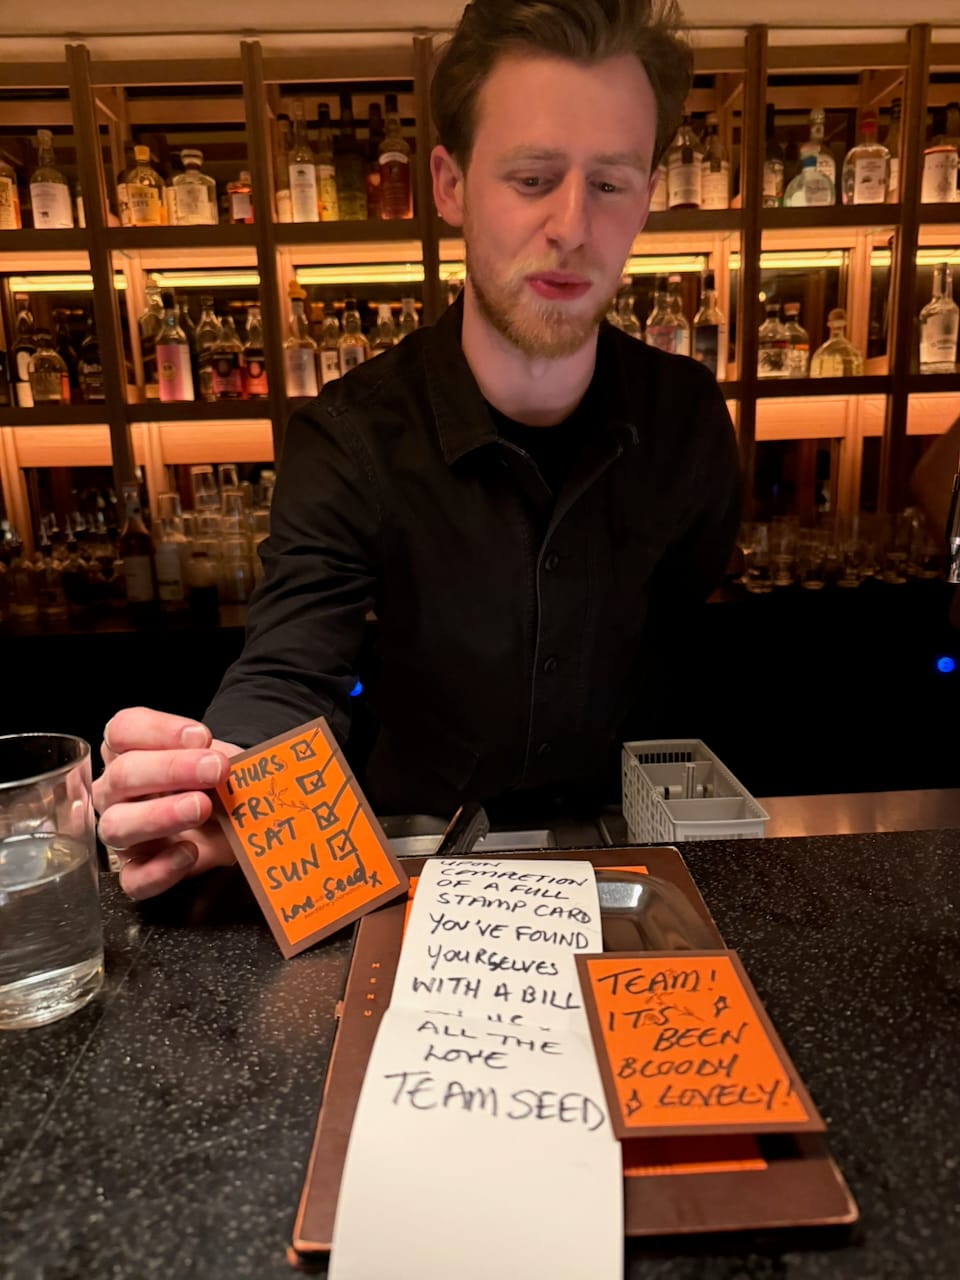 THURS
FRI
SAT
SUN
LOVE Seed x
UPON
COMPLETION
OF A FULL
STAMP CARD
YOU'VE FOUND
YOURSELVES
WITH A BILL
ALL THE
LOVE
TEAM SEED
TEAM!
IT'S
BEEN
BLOODY
LOVELY!